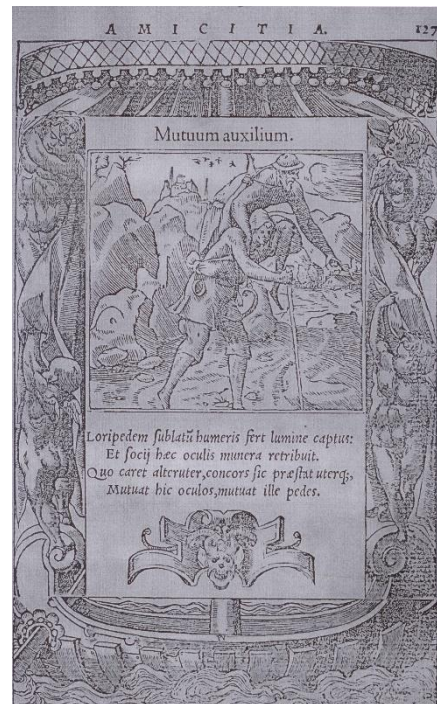 AMICITIA. 127
Mutuum auxilium.
Loripedem sublatũ humeris fert lumine captus:
Et socij hæc oculis munera retribuit.
Quo caret alteruter, concors sic præstat uterq;,
Mutuat hic oculos, mutuat ille pedes.